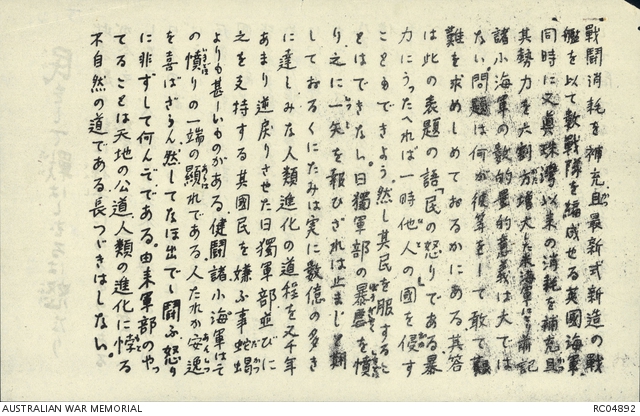 戦闘消耗を補充且最新式新造の戦
艦を以て数戦隊を編成せる英國海軍
同時に又真珠湾以来の消耗を補充且
其勢力を六割方増大した米海軍により前記
諸小海軍の数的量的意義は大では
ない。問題は何が彼等をして敢て艱
難を求めしめておるかにある其答
は此の表題の語「民の怒りである暴
力にうったへれば一時他人の國を侵す
こともできよう。然し其民を服すること
とはできない。日獨軍部の暴慶を憤
り之に一矢を報ひざれは止まじと期
しておるくにたみは実に数億の多き
に達しみな人類進化の道程を又千年
あまり逆戻りさせた日獨軍部並びに
之を支持する其國民を嫌ふ事蛇蝎
よりも甚しいものがある。健闘諸小海軍はそ
の憤りの一端の顯れである人たれか安逸
を喜ばざらん然してなほ出でゝ闘ふ怒り
に非ずして何んぞである。由来軍部のやっ
てることは天地の公道、人類の進化に悖る
不自然の道である、長つゞきはしない。
AUSTRALIAN WAR MEMORIAL
RC04892